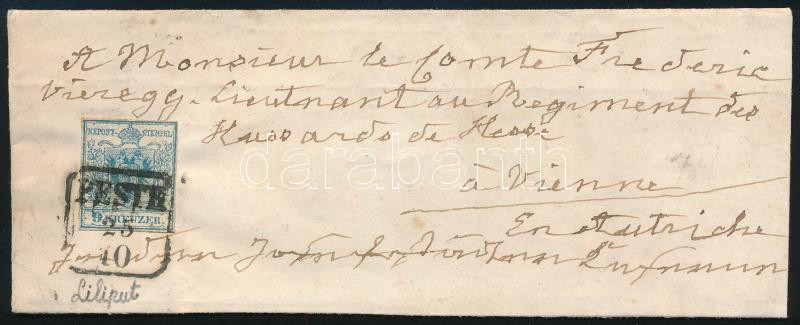 A Monsieur le Comte Frederic
Vieregg. Lieutnant au Regiment des
Hussards de Hesse
à Vienne
En Autriche
KKPOST-STEMPEL
9 KREUZER.
PESTH
25
10
Liliput
darabanth